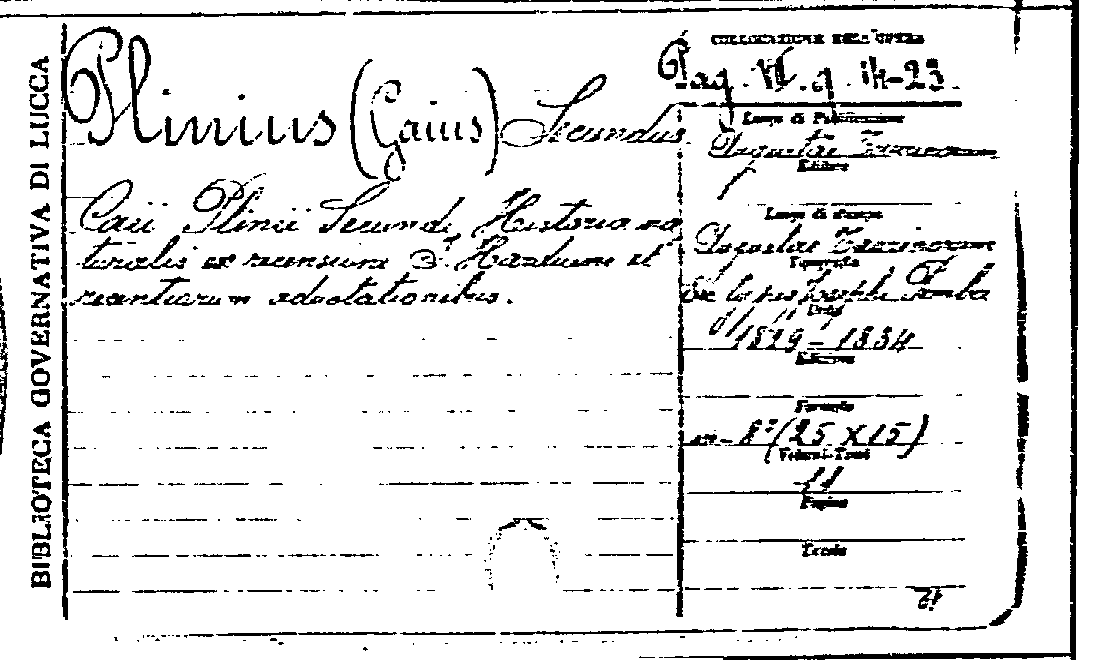 BIBLIOTECA GOVERNATIVA DI LUCCA
Plinius (Gaius) Secundus
Caii Plinii Secundi Historia na
turalis ex recensione I. Harduini et
recentiorum adnotationibus.
COLLOCAZIONE DELL'OPERA
Pag. VI. g. 14-23.
Luogo di Pubblicazione
Augustae Taurinorum
Editore
Luogo di stampa
Augustae Taurinorum
Tipografia
ex typis Josephi Pomba
Data
1829-1834
Edizione
Formato
in-8° (25 x 15)
Volumi-Tomi
11
Pagine
Tavole